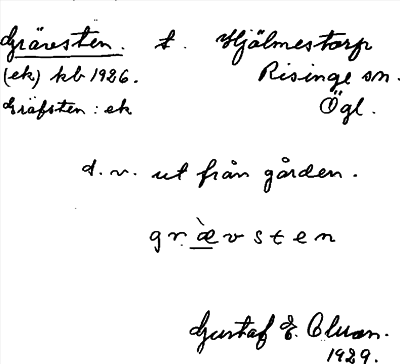 Grävsten. t. Hjälmestorp
(ek) kb 1926. Risinge sn.
Gräfsten : ek Ögl.
d.v. ut från gården.
græ̀vsten
Gustaf E. Olson.
1929.